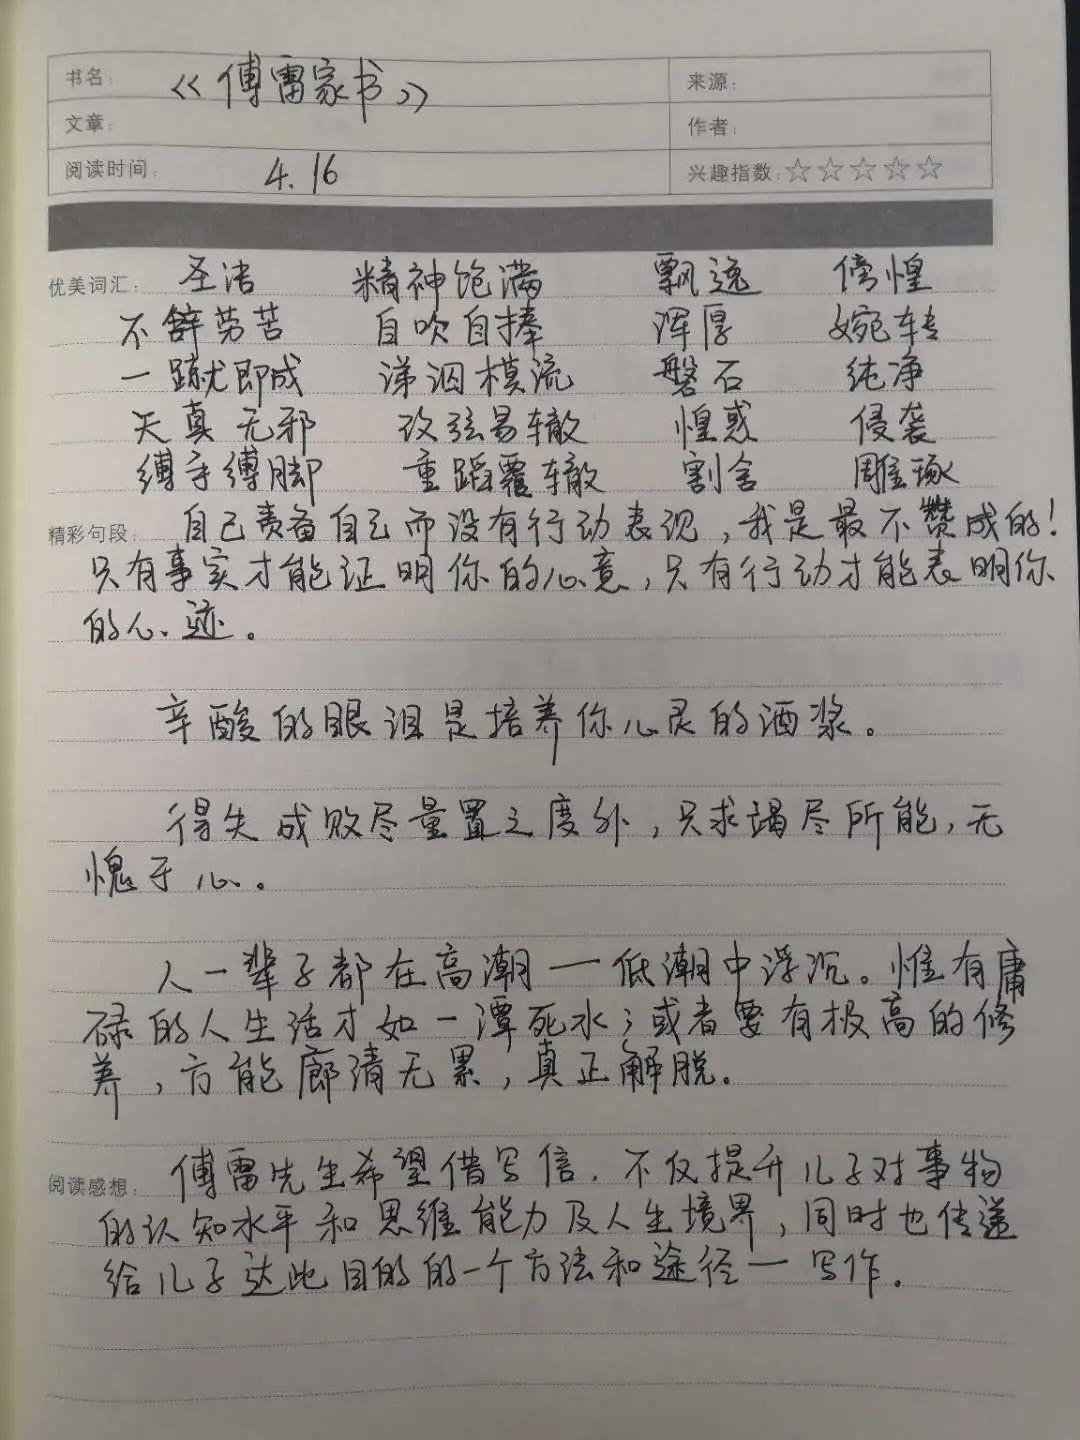 书名: 《傅雷家书》 来源:
文章: 作者:
阅读时间: 4.16 兴趣指数:☆☆☆☆☆
优美词汇: 圣洁 精神饱满 飘逸 傍惶
不辞劳苦 自吹自捧 浑厚 婉转
一蹴即成 涕泗横流 磐石 纯净
天真无邪 改弦易辙 惶惑 侵袭
缚手缚脚 重蹈覆辙 割舍 雕琢
精彩句段: 自己责备自己而没有行动表现,我是最不赞成的!
只有事实才能证明你的心意,只有行动才能表明你
的心迹。
辛酸的眼泪是培养你心灵的酒浆。
得失成败尽量置之度外,只求竭尽所能,无
愧于心。
人一辈子都在高潮一低潮中浮沉。惟有庸
碌的人生活才如一潭死水;或者要有极高的修
养,方能廓清无累,真正解脱。
阅读感想: 傅雷先生希望借写信.不仅提升儿子对事物
的认知水平和思维能力及人生境界,同时也传递
给儿子达此目的的一个方法和途径一写作.